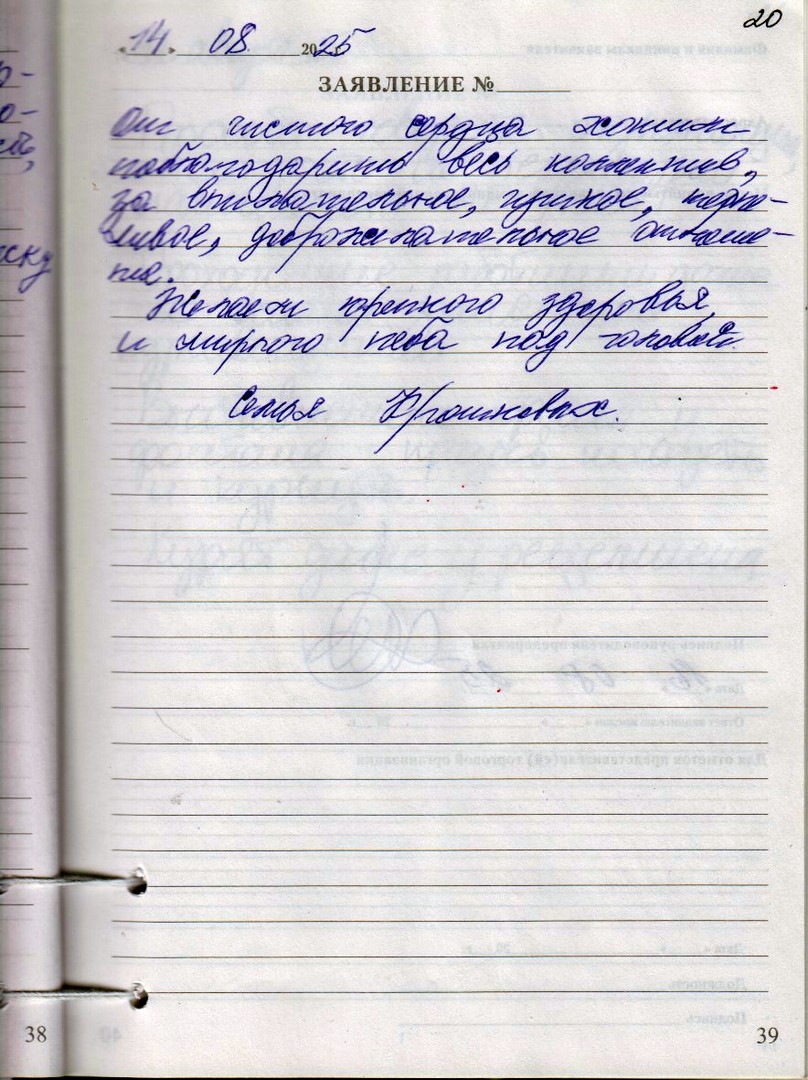 20
«14» 08. 2025
ЗАЯВЛЕНИЕ №
От чистого сердца хотим
поблагодарить весь коллектив,
за внимательное, чуткое, терпе-
ливое, доброжелательное отноше-
ние.
Желаем крепкого здоровья
и мирного неба под головой.
Семья
38
39